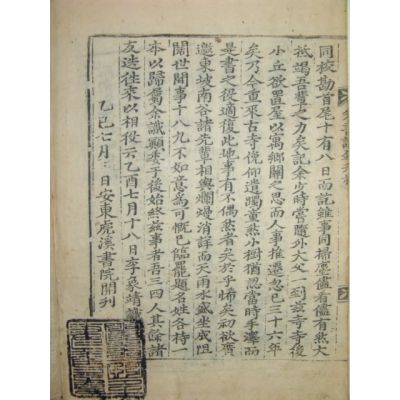 同校勘首尾十有八日而訖雖事同掃塵儘看儘有然大
抵竭吾輩之力矣記余少時嘗隨外大父一到玆寺寺後
小丘欲置屋以寓鄉關之思而人事推遷忽已三十六年
矣乃今重來古寺俛仰遺躅童然小樹猶認當時手澤而
是書之役適復此地事有不偶然者矣於乎悕矣初欲賓
邀東坡南谷諸先輩相與爛熳消詳而天雨水坐成阻
閡世間事十八九不如意爲可慨已臨罷題名姓各持一
本以歸屬余識顚委于後始終玆事者吾三四人其餘諸
友迭往來以相役云乙酉七月十八日李象靖識
乙巳七月 日安東虎溪書院開刊